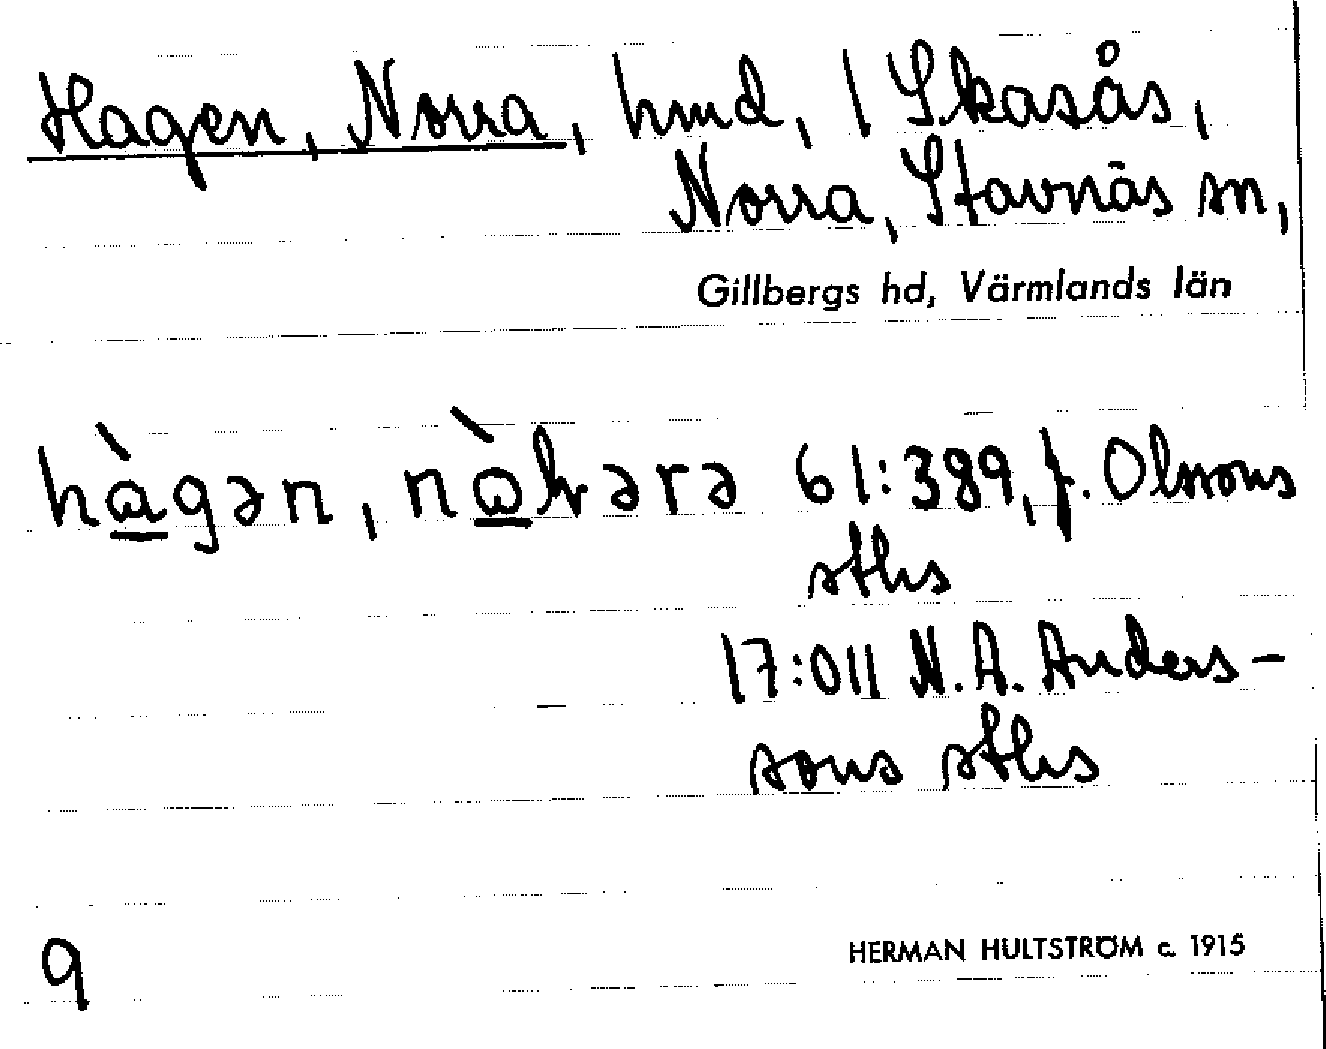 Hagen, Norra, hmd, 1 Skasås,
Norra, Stavnäs sn,
Gillbergs hd, Värmlands län
hàgən, 61:389, f. Olssons
sths
17:011 N. A. Anders-
sons sths
9
HERMAN HULTSTRÖM c. 1915